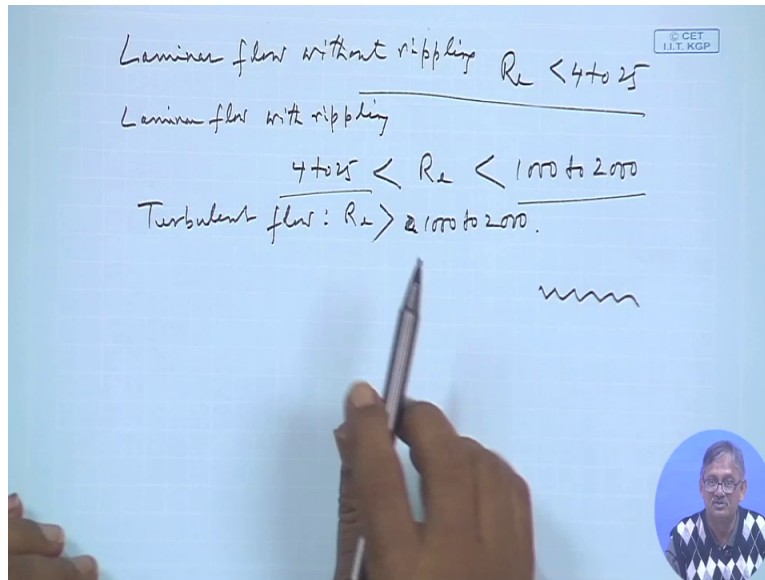 © CET
I.I.T. KGP
Laminar flow without rippling Re < 4 to 25
Laminar flow with rippling
4 to 25 < Re < 1000 to 2000
Turbulent flow: Re > 1000 to 2000.